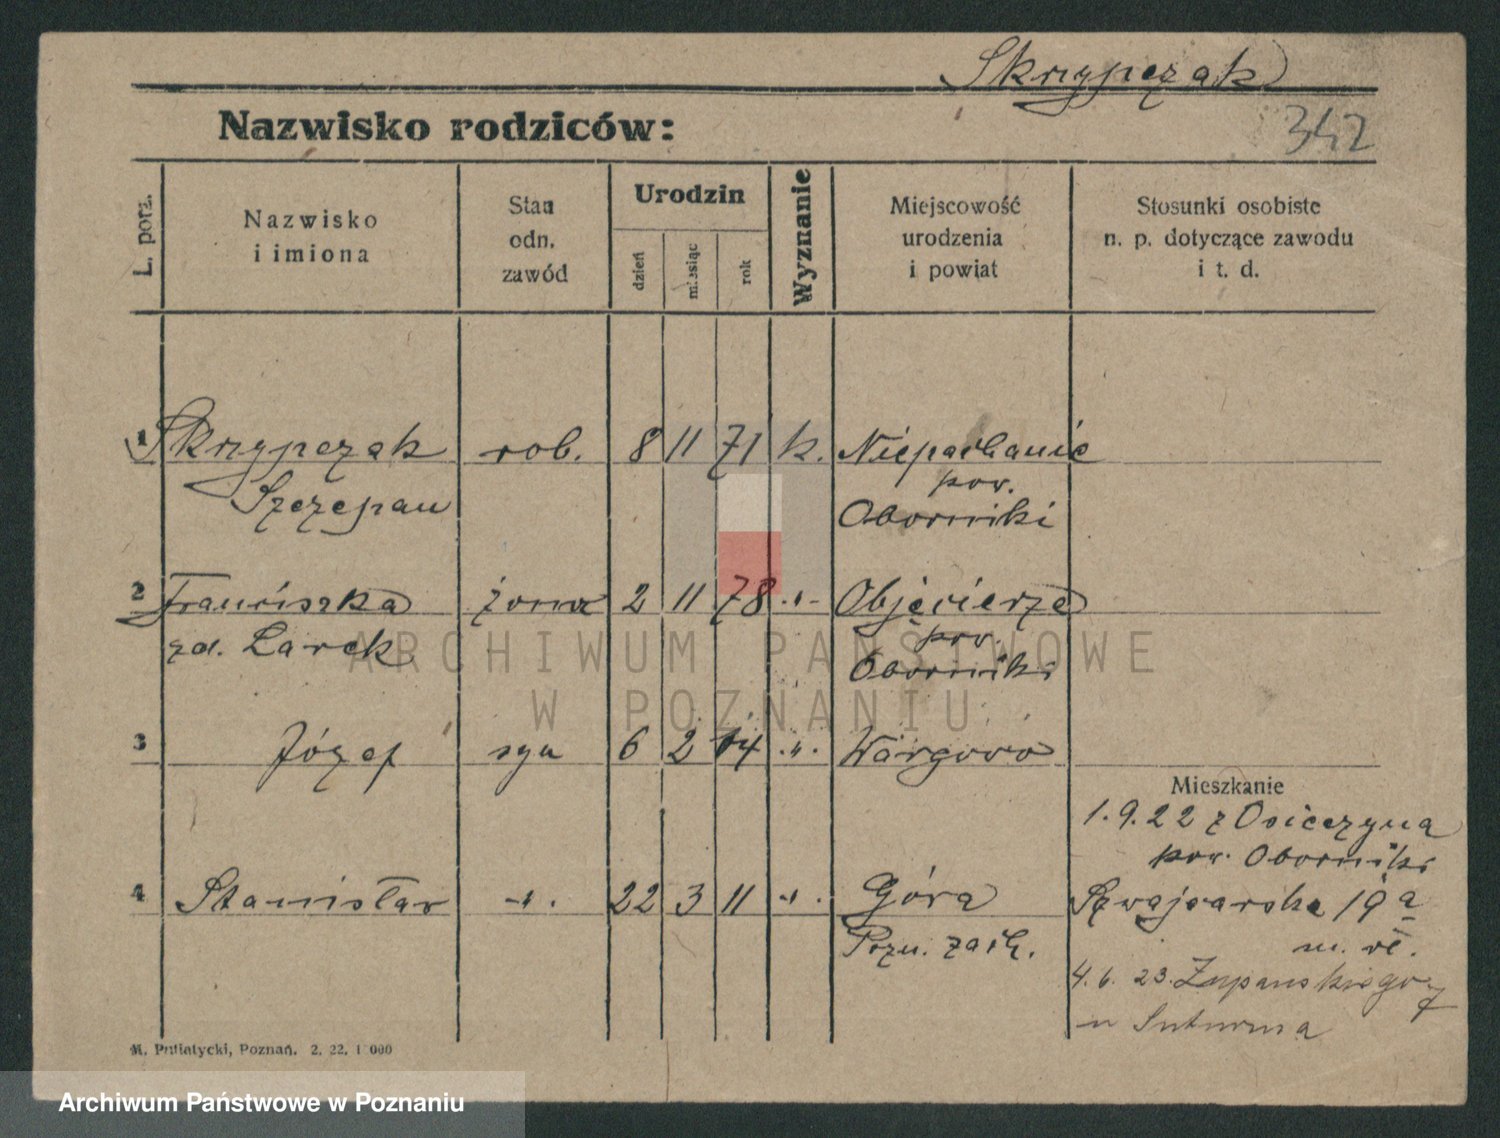 Skrzypczak
Nazwisko rodziców:
342
L. porz.
Nazwisko
i imiona
Stan
odn.
zawód
Urodzin
dzień
miesiąc
rok
Wyznanie
Miejscowość
urodzenia
i powiat
Stosunki osobiste
n. p. dotyczące zawodu
i t. d.
1 Skrzypczak rob. 8 11 71 k. Niepachanie
Szczepan pow.
Oborniki
2 Franciszka żona 2 11 78 -"- Objezierze
zd. Larek pow.
Oborniki
3 Józef syn 6 2 14 -"- Wargowo
Mieszkanie
1.9.22 z Osieczyna
pow. Oborniki
4 Stanisław -"- 22 3 11 -"- Góra Szwajcarska 19a
Pozn. zach. m. wł.
4.6.23. Żupańskiego 7
u
M. Putiatycki, Poznań. 2. 22. 1 000
ARCHIWUM PAŃSTWOWE
W POZNANIU
Archiwum Państwowe w Poznaniu